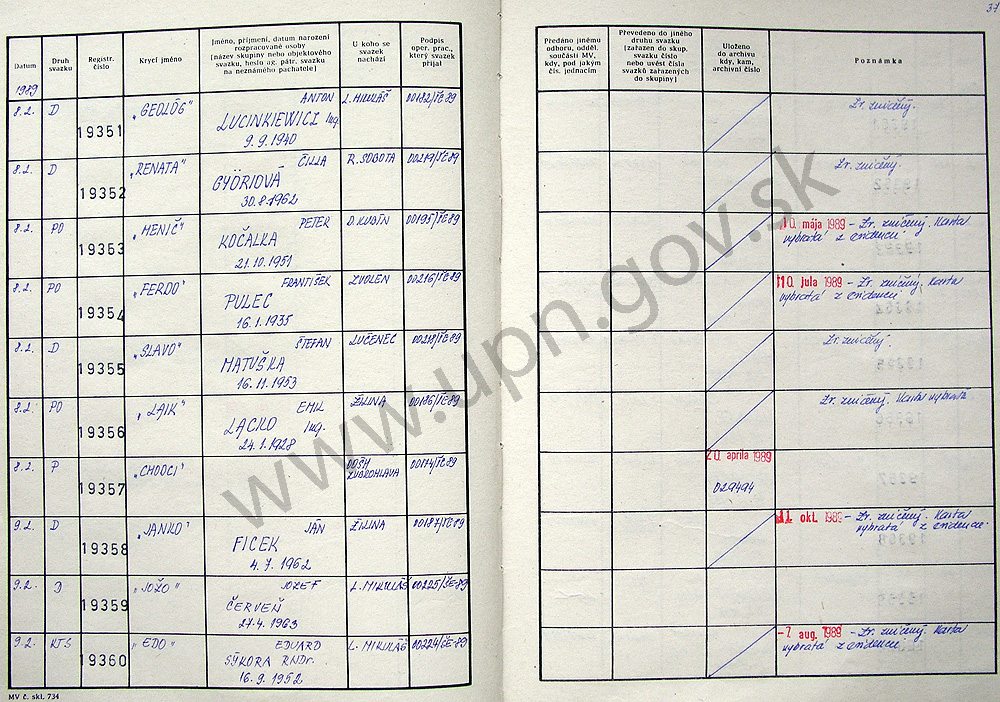 37
Datum
Druh svazku
Registr. číslo
Krycí jméno
Jméno, příjmení, datum narození
rozpracované osoby
(název skupiny nebo objektového
svazku, heslo ag. pátr. svazku
na neznámého pachatele)
U koho se
svazek
nachází
Podpis
oper. prac.,
který svazek
přijal
Předáno jinému
odboru, odděl.
součásti MV,
kdy, pod jakým
čís. jednacím
Převedeno do jiného
druhu svazku
(zařazen do skup.
svazku číslo
nebo uvést čísla
svazků zařazených
do skupiny)
Uloženo
do archivu
kdy, kam,
archivní číslo
Poznámka
1989
8.2. D 19351 "GEOLÓG" ANTON L. MIKULÁŠ 00182/ŠČ-89
LUCINKIEWICZ Ing.
9.9.1940
Zv. zničený.
8.2. D 19352 "RENATA" CILIA R. SOBOTA 00219/ŠČ-89
GYÖRIOVÁ
30.8.1962
Zv. zničený.
8.2. PO 19353 "MENIČ" PETER D. KUBÍN 00195/ŠČ-89
KOČALKA
21.10.1951
10. mája 1989 - Zv. zničený. Karta
vybratá z evidencie.
8.2. PO 19354 "FERDO" FRANTIŠEK ZVOLEN 00216/ŠČ-89
PULEC
16.1.1935
10. júla 1989 - Zv. zničený, Karta
vybratá z evidencie.
8.2. D 19355 "SLAVO" ŠTEFAN LUČENEC
MATUŠKA
16.11.1953
Zv. zničený.
8.2. PO 19356 "LAIK" EMIL ŽILINA 00186/ŠČ-89
LACKO Ing.
24.1.1928
Zv. zničený. Karta vybratá
8.2. P 19357 "CHODCI" ZUBROHLAVA 00174/ŠČ-89
20. apríla 1989
029494
9.2. D 19358 "JANKO" JÁN ŽILINA 00187/ŠČ-89
FICEK
4.7.1962
11. okt. 1989 - Zv. zničený. Karta
vybratá z evidencie.
9.2. D 19359 "JOŽO" JOZEF L. MIKULÁŠ 00225/ŠČ-89
ČERVEŇ
27.4.1963
9.2. KTS 19360 "EDO" EDUARD L. MIKULÁŠ 00224/ŠČ-89
SÝKORA RNDr.
16.9.1952
-7. aug. 1989 - Zv. zničený. Karta
vybratá z evidencie.
MV č. skl. 734
www.upn.gov.sk